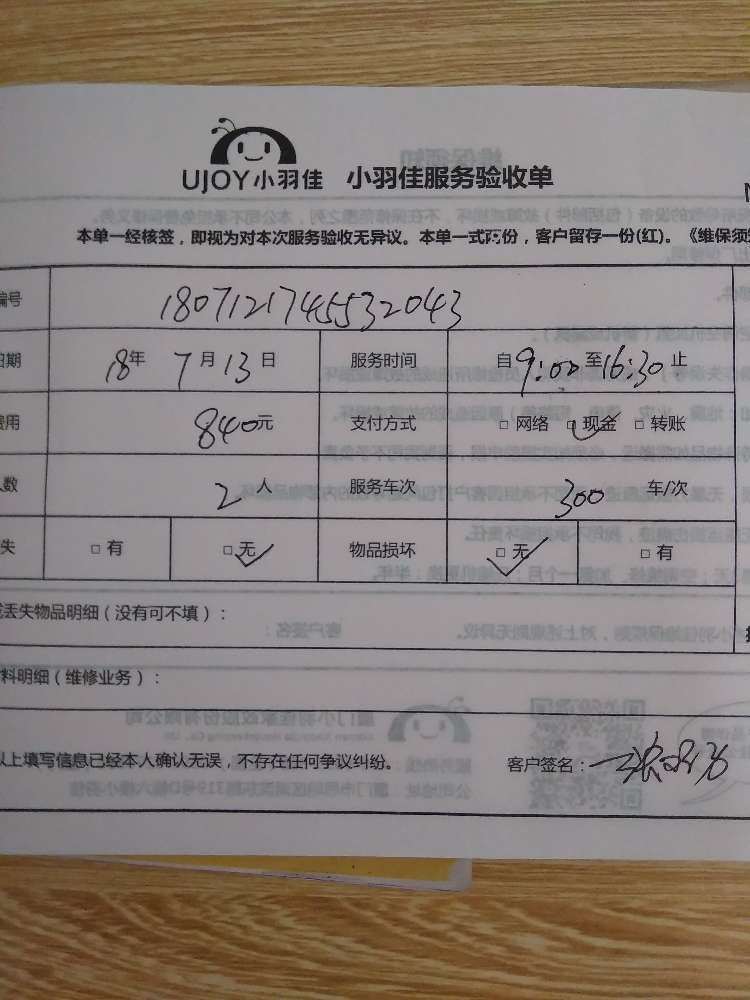 UJOY小羽佳 小羽佳服务验收单
本单一经核签，即视为对本次服务验收无异议。本单一式两份，客户留存一份(红)。《维保须知
编号 1807121745532043
日期 18年 7月13日 服务时间 自9:00至16:30止
费用 840元 支付方式 □网络 □现金 □转账
人数 2人 服务车次 300 车/次
失 □有 □无 物品损坏 □无 □有
丢失物品明细（没有可不填）：
料明细（维修业务）：
以上填写信息已经本人确认无误，不存在任何争议纠纷。 客户签名：